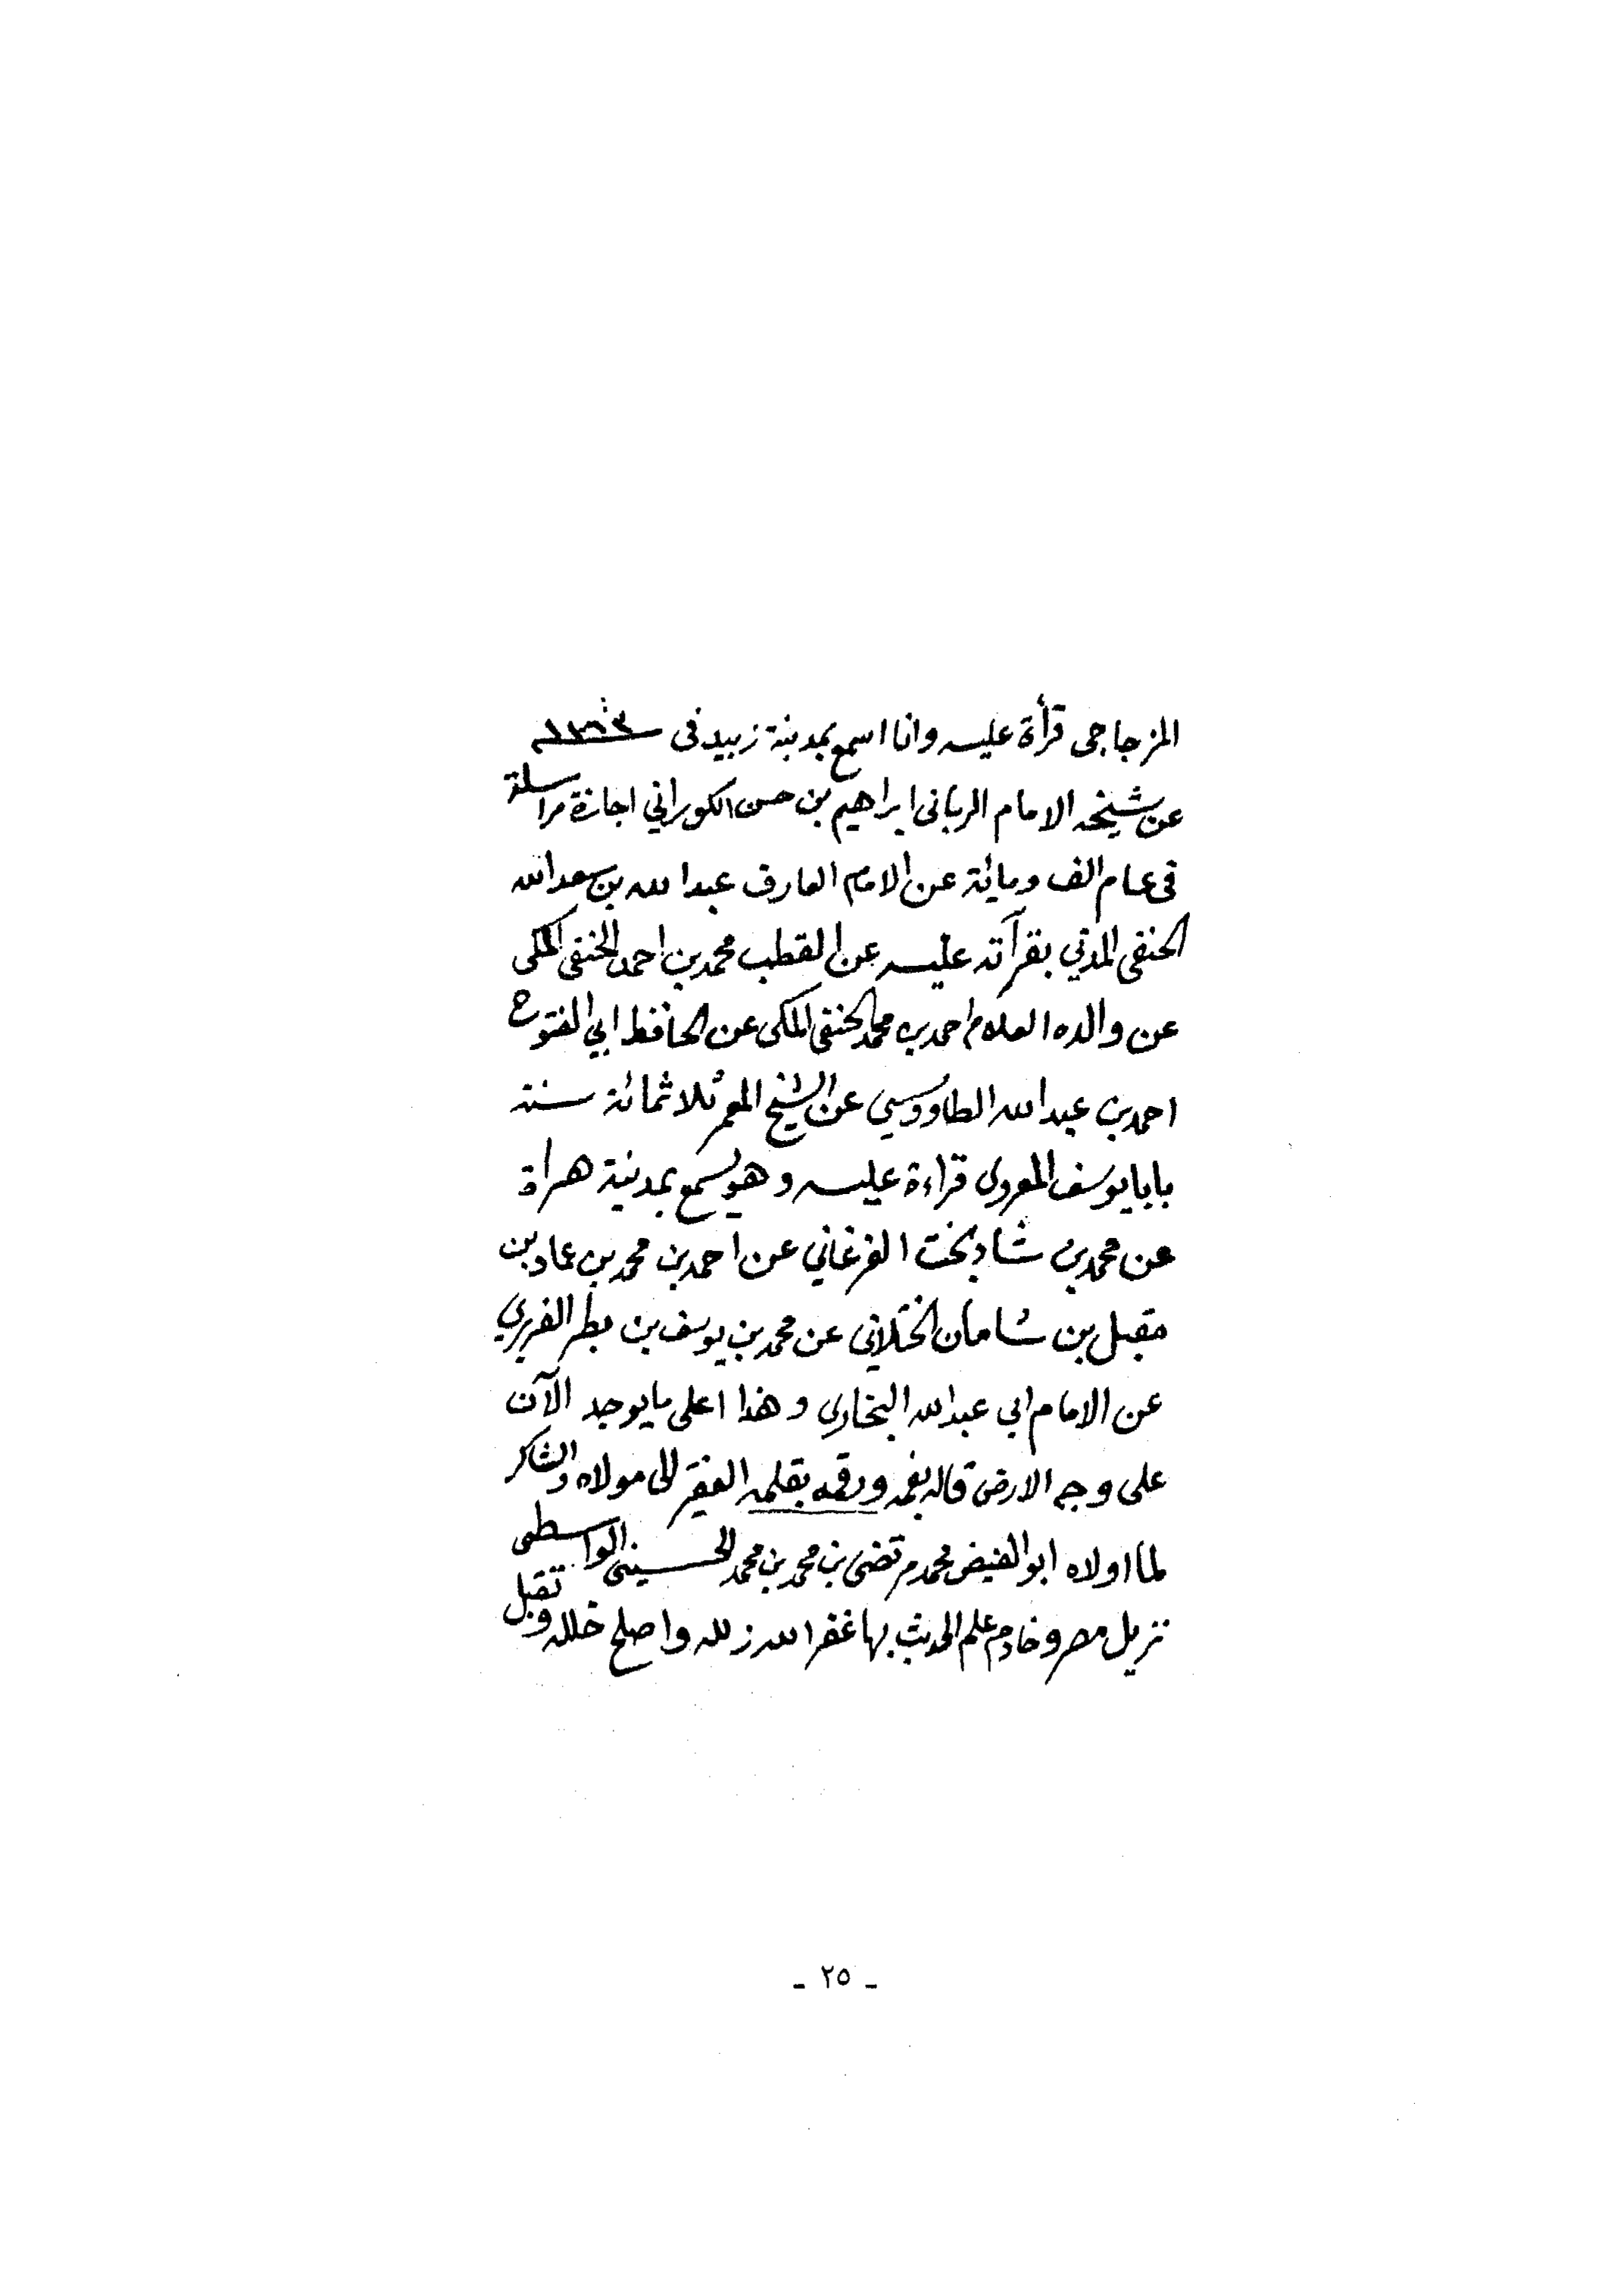 المزجاجى قرأة عليه وانا اسمع بمدينة زبيد فى
عن شيخه الامام الربانى ابراهيم بن حسن الكوراني اجازة مراسلة
فى عام الف ومائة عن الامام العارف عبدالله بن سعدالله
الحنفى المدني بقرآته عليه عن القطب محمد بن احمد الحنفى المكى
عن والده العلام احمد بن محمد الحنفى المكى عن الحافظ ابي الفتوح
احمد بن عبدالله الطاووسي عن الشيخ المعمر ثلاثمائة سنة
بابا يوسف الهروى قراءة عليه وهو يسمع بمدينة هراة
عن محمد بن شاد بخت الفرغاني عن احمد بن محمد بن عماد بن
مقبل بن شامان الختلاني عن محمد بن يوسف بن مطر الفربري
عن الامام ابي عبدالله البخارى وهذا اعلى ما يوجد الآن
على وجه الارض قاله بفمه ورقمه بقلمه الفقير الى مولاه والشاكر
لما اولاه ابو الفيض محمد مرتضى بن محمد بن محمد الحسينى الواسطى
نزيل مصر وخادم علم الحديث بها غفر الله زلله واصلح خلله وتقبل
- ٢٥ -